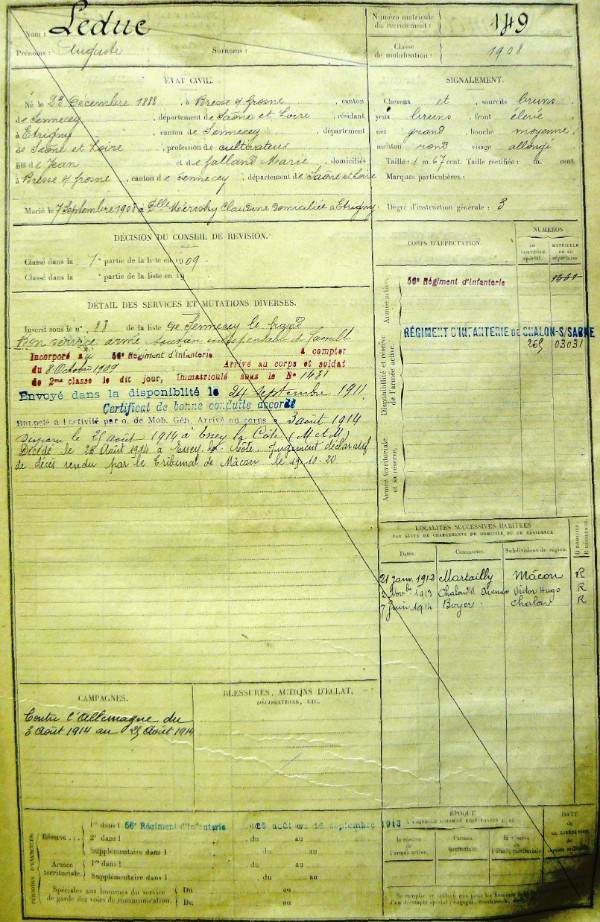 Nom : Leduc
Prénoms : Auguste Surnoms :
Numéro matricule
du recrutement : 149
Classe
de mobilisation : 1908
ÉTAT CIVIL
Né le 22 Décembre 1888, à Bresse s/ Grosne, canton
de Sennecey, département de Saône et Loire, résidant
à Etrigny, canton de Sennecey, département
de Saône et Loire, profession de cultivateur
fils de Jean et de Jalland Marie, domiciliés
à Bresse s/ Grosne, canton de Sennecey, département de Saône et Loire
Marié le 7 Septembre 1908 à Elle Claudine domiciliée à Etrigny
SIGNALEMENT.
Cheveux et sourcils bruns
yeux bruns front élevé
nez grand bouche moyenne
menton rond visage allongé
Taille : 1 m. 67 cent. Taille rectifiée : m. cent.
Marques particulières :
Degré d'instruction générale : 3
DÉCISION DU CONSEIL DE RÉVISION.
Classé dans la 1e partie de la liste en 1909
Classé dans la partie de la liste en 19
DÉTAIL DES SERVICES ET MUTATIONS DIVERSES.
Inscrit sous le n° 88 de la liste de Sennecey le Grand
Bon service armé
Incorporé au 56e Régiment d'Infanterie à compter
du 8 Octobre 1909 Arrivé au corps et soldat
de 2me classe le dit jour, Immatriculé sous le N° 1631
Envoyé dans la disponiblité le 24 Septembre 1911
Certificat de bonne conduite accordé
Rappelé à l'activité par o. de Mob. Gén. Arrivé au corps le 3 août 1914
Disparu le 25 août 1914 à Essey la Côte (M et M)
Décédé le 25 Août 1914 à Essey la Côte Jugement déclaratif
de décès rendu par le tribunal de Mâcon le 19-10-20
CORPS D'AFFECTATION.
NUMÉROS
56e Régiment d'Infanterie
RÉGIMENT D'INFANTERIE DE CHALON-S/SAÔNE
03031
Armée active.
Disponibilité et réserve
de l'armée active.
Armée territoriale
et sa réserve.
LOCALITÉS SUCCESSIVES HABITÉES
PAR SUITE DE CHANGEMENTS DE DOMICILE OU DE RÉSIDENCE.
Dates. Communes. Subdivisions de région.
21 janv. 1912 Martailly Mâcon R
Novbre 1913 Chalon Victor Hugo R
7 Juin 1914 Boyer Chalon R
CAMPAGNES.
Contre l'Allemagne du
3 Août 1914 au 25 Août 1914
BLESSURES, ACTIONS D'ÉCLAT,
DÉCORATIONS, ETC.
PÉRIODES D'EXERCICES
Réserve :
1er dans l 56e Régiment d'Infanterie du 25 août au 16 septembre 1913
2e dans l du au
Supplémentaire dans l du au
Armée
territoriale.
1re dans l du au
Supplémentaire dans l du au
Spéciales aux hommes du service
de garde des voies de communication. Du au
ÉPOQUE
DATE